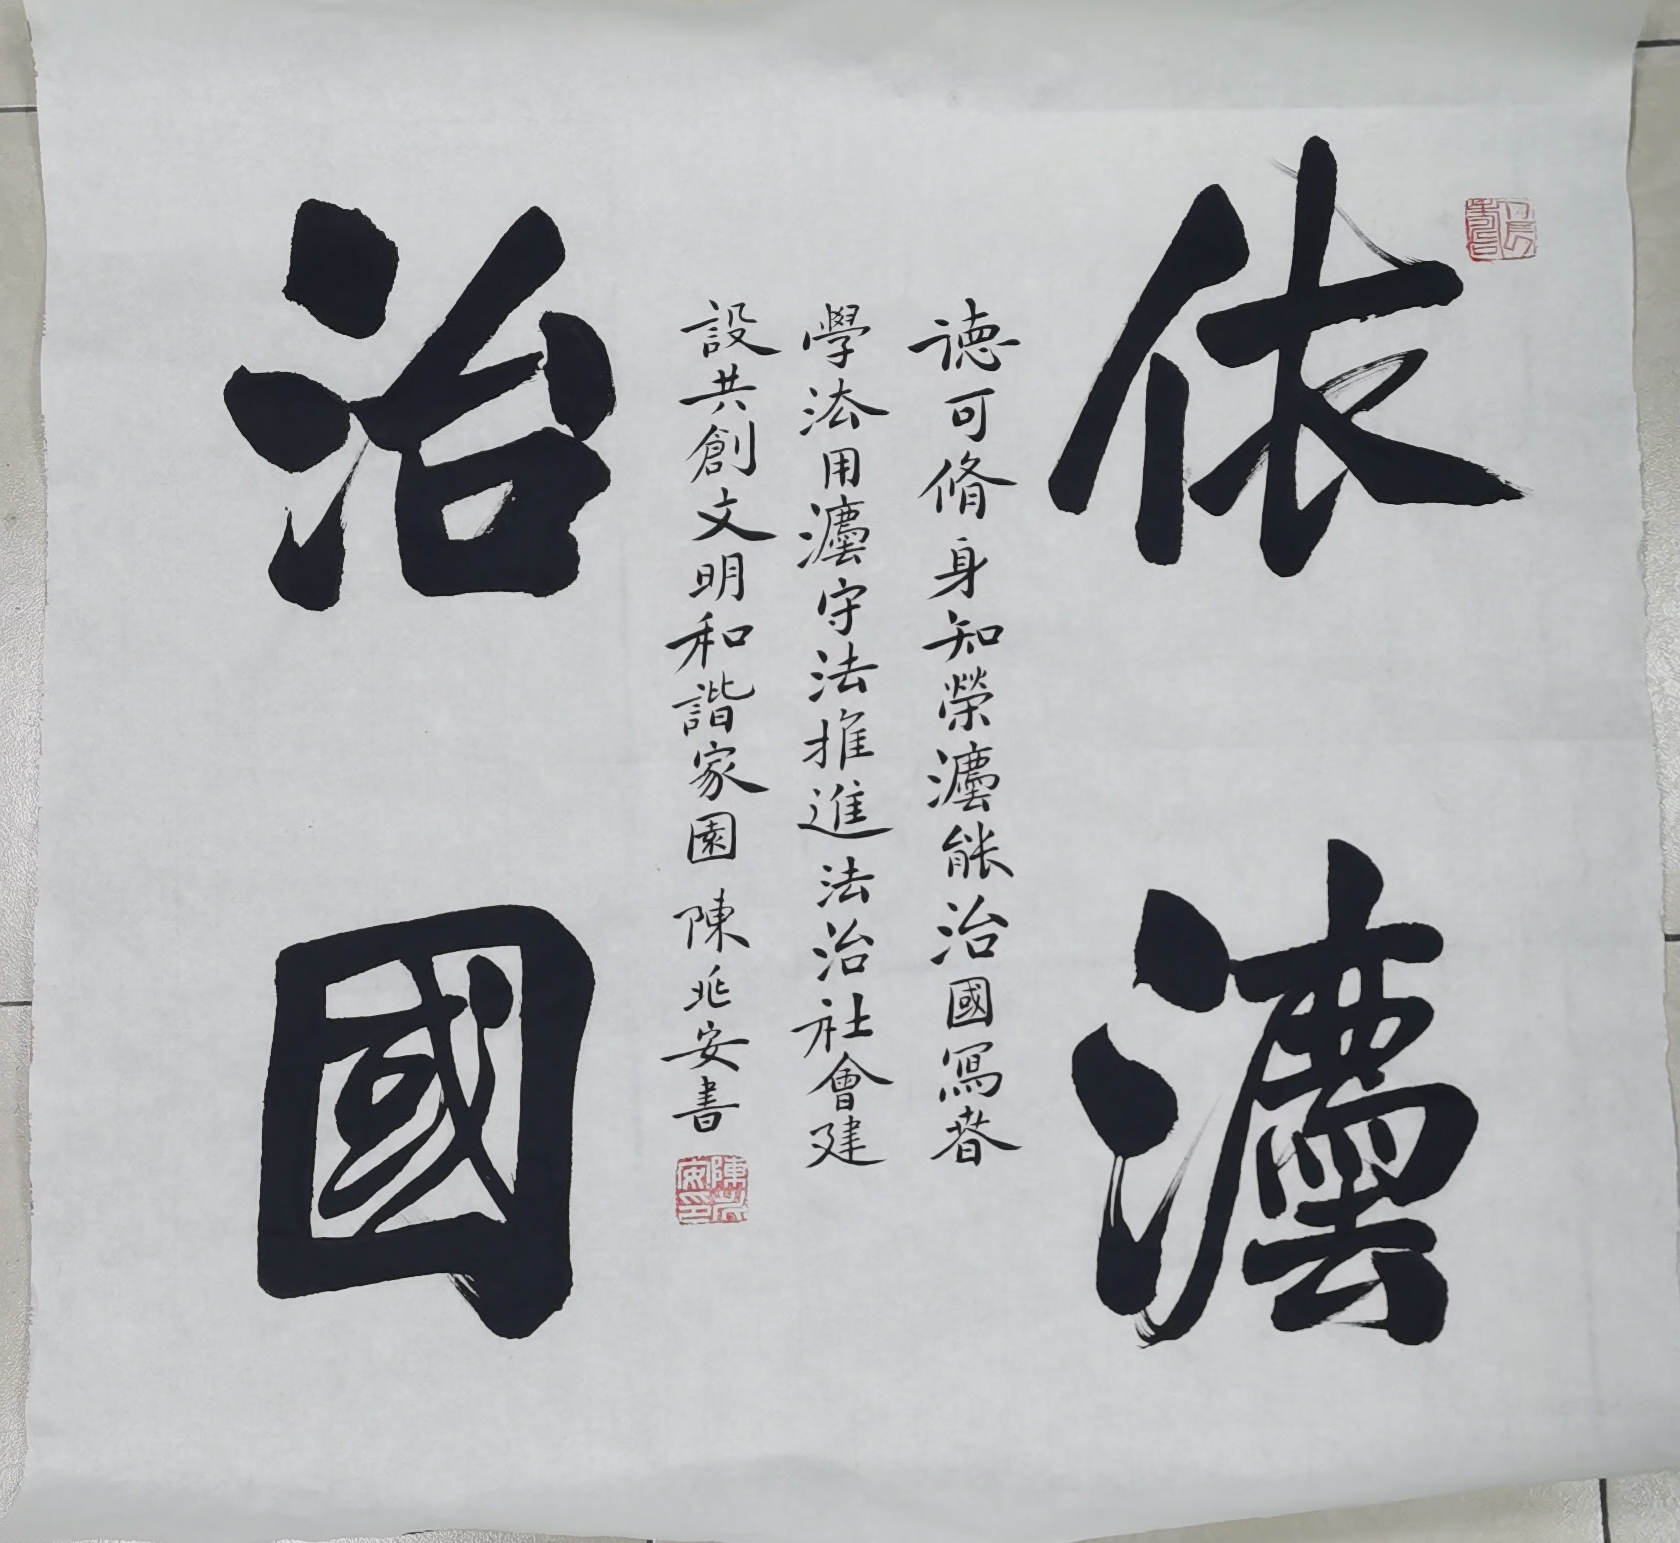 依灋
德可脩身知榮灋能治國冩春
學法用灋守法推進法治社會建
設共創文明和諧家園 陳兆安書
陳兆安印
治國